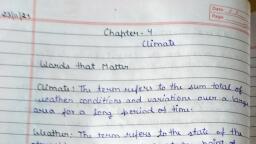 Date
Page
23/11/21
Chapter - 4
Climate
Words that Matter
Climate: The term refers to the sum total of
weather conditions and variations over a large
area for a long period of time.
Weather: The term refers to the state of the
point of